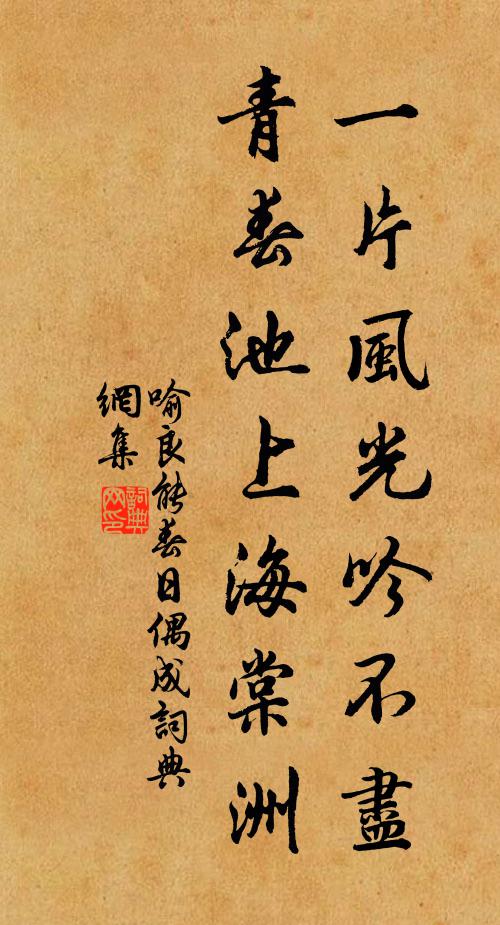 一片風光吟不盡
青春池上海棠洲
喻良能春日偶成詞典
網集
詞典網印